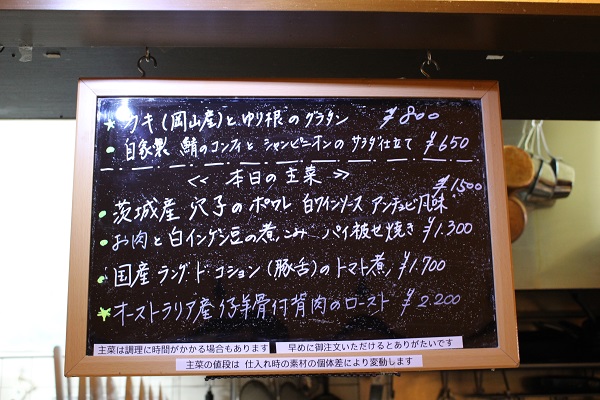 ★ カキ(岡山産)とゆり根のグラタン ¥800
・自家製 鯖のコンフィとシャンピニオンのサラダ仕立て ¥650
<< 本日の主菜 >>
・茨城産 穴子のポワレ 白ワインソース アンチョビ風味 ¥1500
・お肉と白インゲン豆の煮こみ パイ被せ焼き ¥1.300
・国産ラング・ド・コション(豚舌)のトマト煮 ¥1.700
★オーストラリア産 仔羊骨付背肉のロースト ¥2.200
主菜は調理に時間がかかる場合もあります 早めに御注文いただけるとありがたいです
主菜の値段は 仕入れ時の素材の個体差により変動します